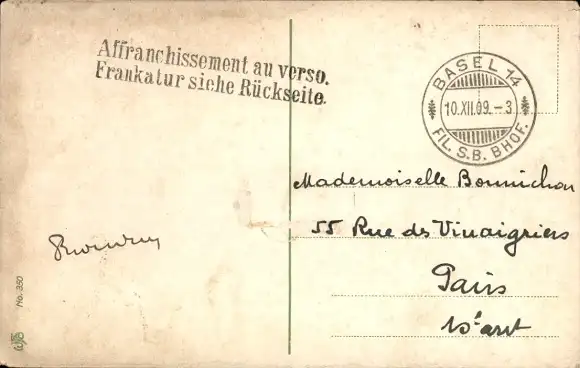 Affranchissement au verso.
Frankatur siehe Rückseite.
BASEL 14
10.XII.09.-3
FIL. S.B. BHOF.
Mademoiselle Bonnichon
55 Rue des Vinaigriers
Paris
No. 350